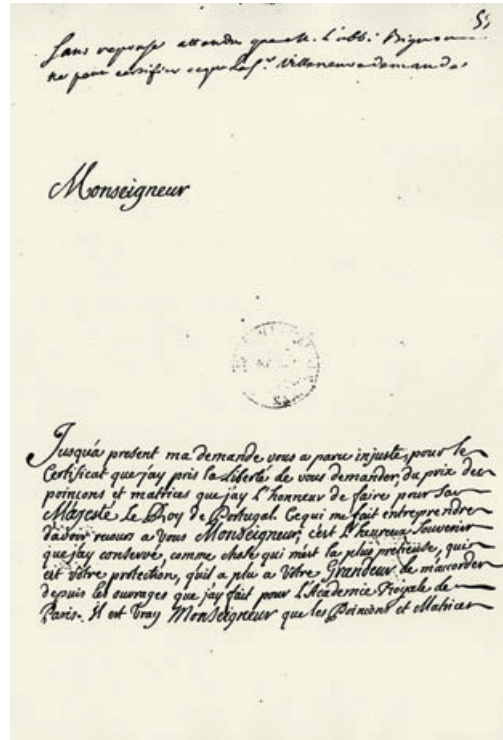 55
Sans reponse attendu que M. L'abbé Bignon
ne peut certifier ce que Le Sr. Villeneuve demande.
Monseigneur
Jusqu'a present ma demande vous a paru injuste, pour le
Certificat que jay pris la Liberté de vous demander, du prix des
poinçons et matrices que jay L'honneur de faire pour Sa
Majesté Le Roy de Portugal. Ce qui me fait entreprendre
d'avoir recours a Vous Monseigneur, c'est L'heureux Souvenir
que jay conservé, comme chose qui m'est la plus pretieuse, qui
est vôtre protection, qu'il a plu a Vôtre Grandeur de m'accorder
depuis les ouvrages que jay fait pour L'Academie Royale de
Paris. Il est Vray Monseigneur que les Poinçons et Matrices